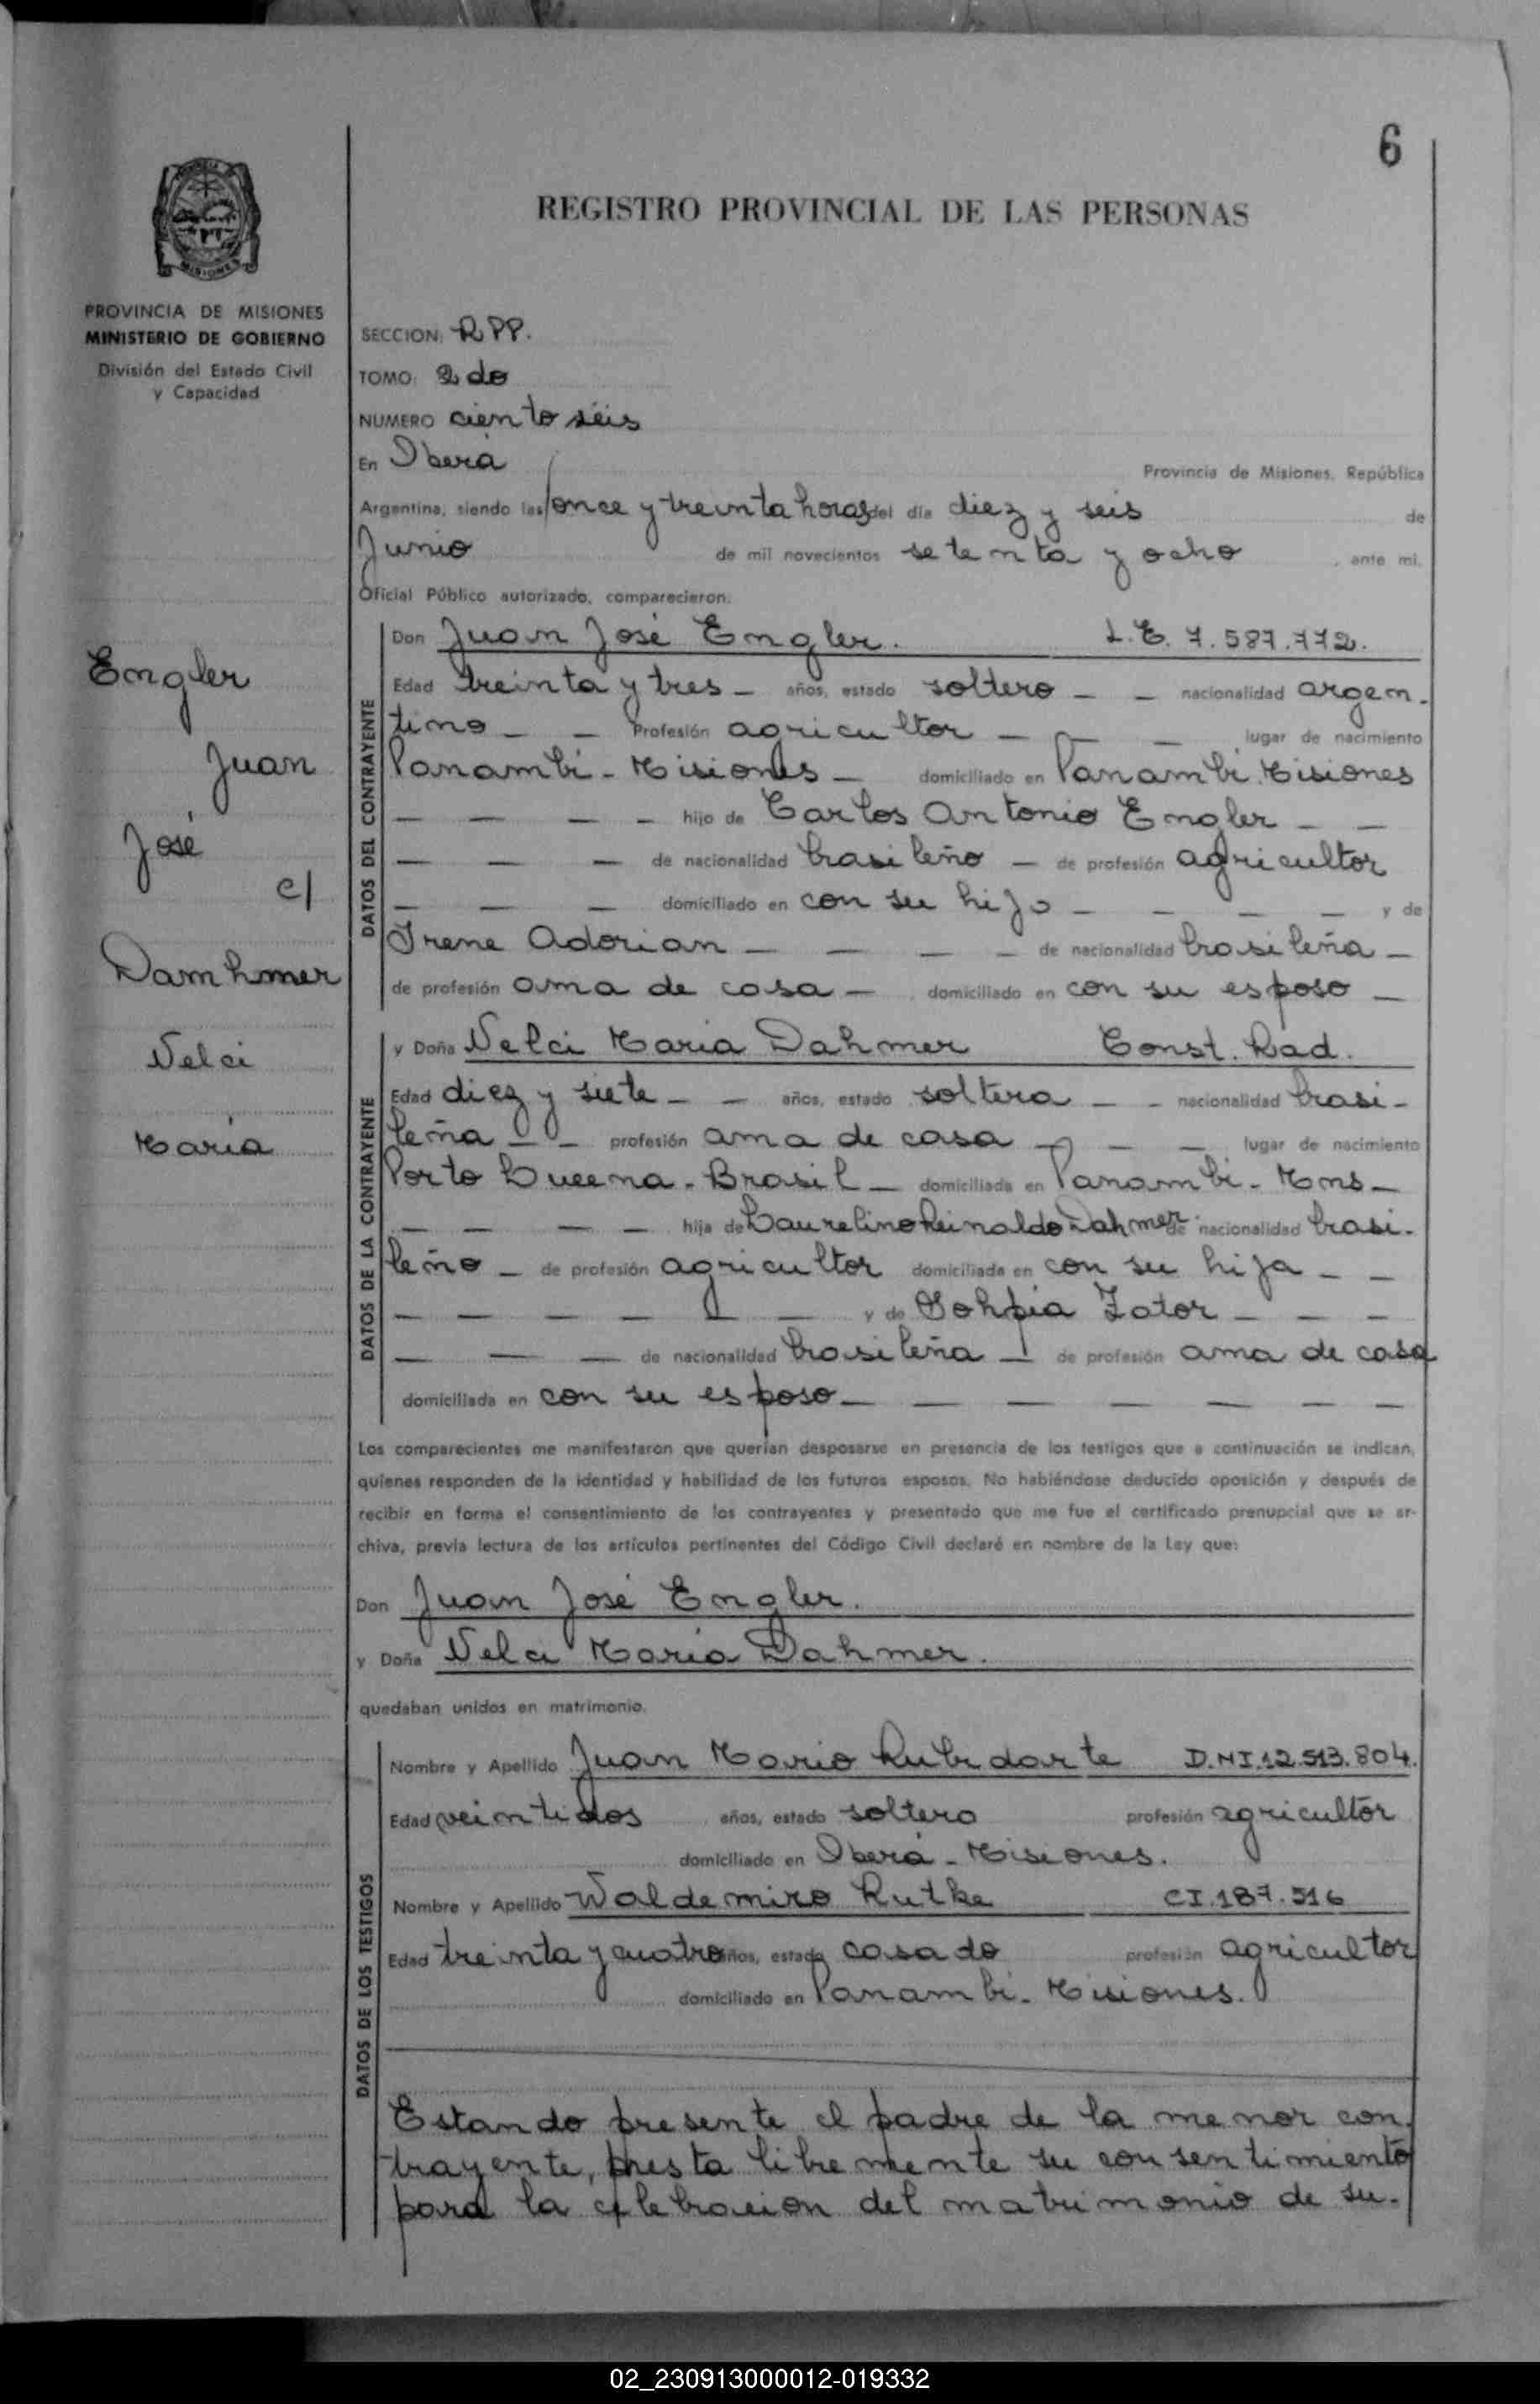 6
REGISTRO PROVINCIAL DE LAS PERSONAS
MISIONES
PROVINCIA DE MISIONES
MINISTERIO DE GOBIERNO
División del Estado Civil
y Capacidad
SECCION: R.P.P.
TOMO: 2do
NUMERO ciento seis
En Oberá
Provincia de Misiones, República
Argentina, siendo las once y treinta horas del día diez y seis de
Junio de mil novecientos setenta y ocho, ante mi,
Oficial Público autorizado, comparecieron:
Engler
Juan
José
c/
Damhmer
Nelci
María
DATOS DEL CONTRAYENTE
Don Juan José Engler. L.E. 7.587.772.
Edad treinta y tres - años, estado soltero - - nacionalidad argen-
tino - - Profesión agricultor - - - lugar de nacimiento
Panambí - Misiones - domiciliado en Panambí. Misiones
- - - - hijo de Carlos Antonio Engler - -
- - - de nacionalidad brasileño - de profesión agricultor
- - - domiciliado en con su hijo - - - - y de
Irene Adorian - - - - de nacionalidad brasileña -
de profesión ama de casa - domiciliado en con su esposo -
DATOS DE LA CONTRAYENTE
y Doña Nelci Maria Dahmer Const. Rad.
Edad diez y siete - - años, estado soltera - - nacionalidad brasi-
leña - - profesión ama de casa - - - lugar de nacimiento
Porto Lucena - Brasil - domiciliada en Panambí - Mns -
- - - - hija de Laurelino Reinaldo Dahmer de nacionalidad brasi-
leño - de profesión agricultor domiciliada en con su hija - -
- - - - - - y de Sohpia Zator - - -
- - - de nacionalidad brasileña - de profesión ama de casa
domiciliada en con su esposo - - - - - - -
Los comparecientes me manifestaron que querían desposarse en presencia de los testigos que a continuación se indican,
quienes responden de la identidad y habilidad de los futuros esposos. No habiéndose deducido oposición y después de
recibir en forma el consentimiento de los contrayentes y presentado que me fue el certificado prenupcial que se ar-
chiva, previa lectura de los artículos pertinentes del Código Civil declaré en nombre de la Ley que:
Don Juan José Engler.
y Doña Nelci Maria Dahmer.
quedaban unidos en matrimonio.
DATOS DE LOS TESTIGOS
Nombre y Apellido Juan Mario D.N.I.12.513.804.
Edad veintidos años, estado soltero profesión agricultor
domiciliado en Oberá - Misiones.
Nombre y Apellido Waldemiro Rutke CI.187.516
Edad treinta y cuatro años, estado casado profesión agricultor
domiciliado en Panambí - Misiones.
Estando presente el padre de la menor con-
trayente, presta libremente su consentimiento
para la celebracion del matrimonio de su.
02_230913000012-019332